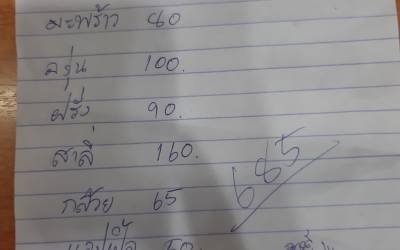 มะพร้าว 60
องุ่น 100.
ฝรั่ง 90.
สาลี่ 160.
685
กล้วย 65